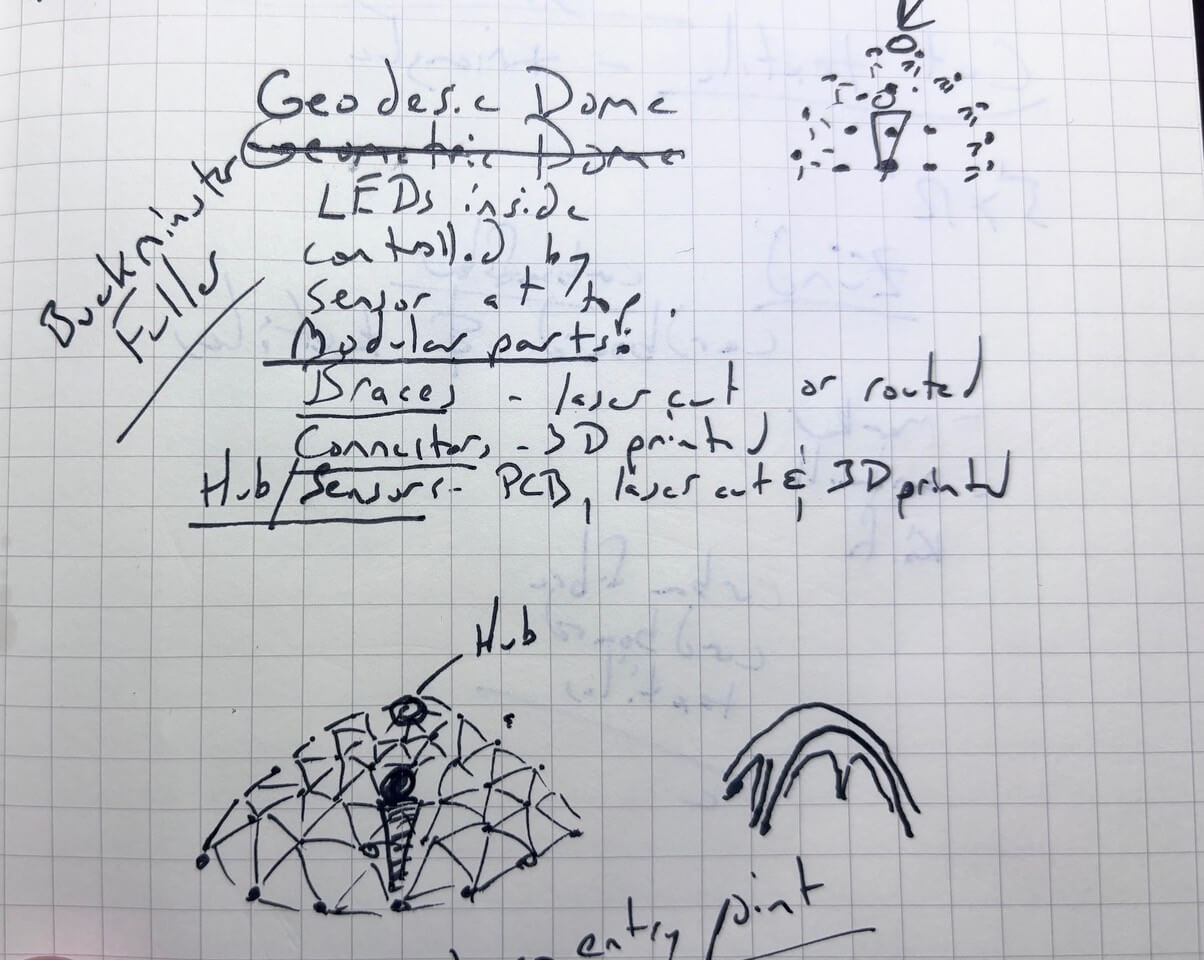 Geodesic Dome
Geometric Dome
Buckminster
Fuller
LEDs inside
controlled by
sensor at top.
Modular parts:
Braces - laser cut or routed
Connectors - 3D printed
Hub/Sensors - PCB, laser cut & 3D printed
Hub
entry point